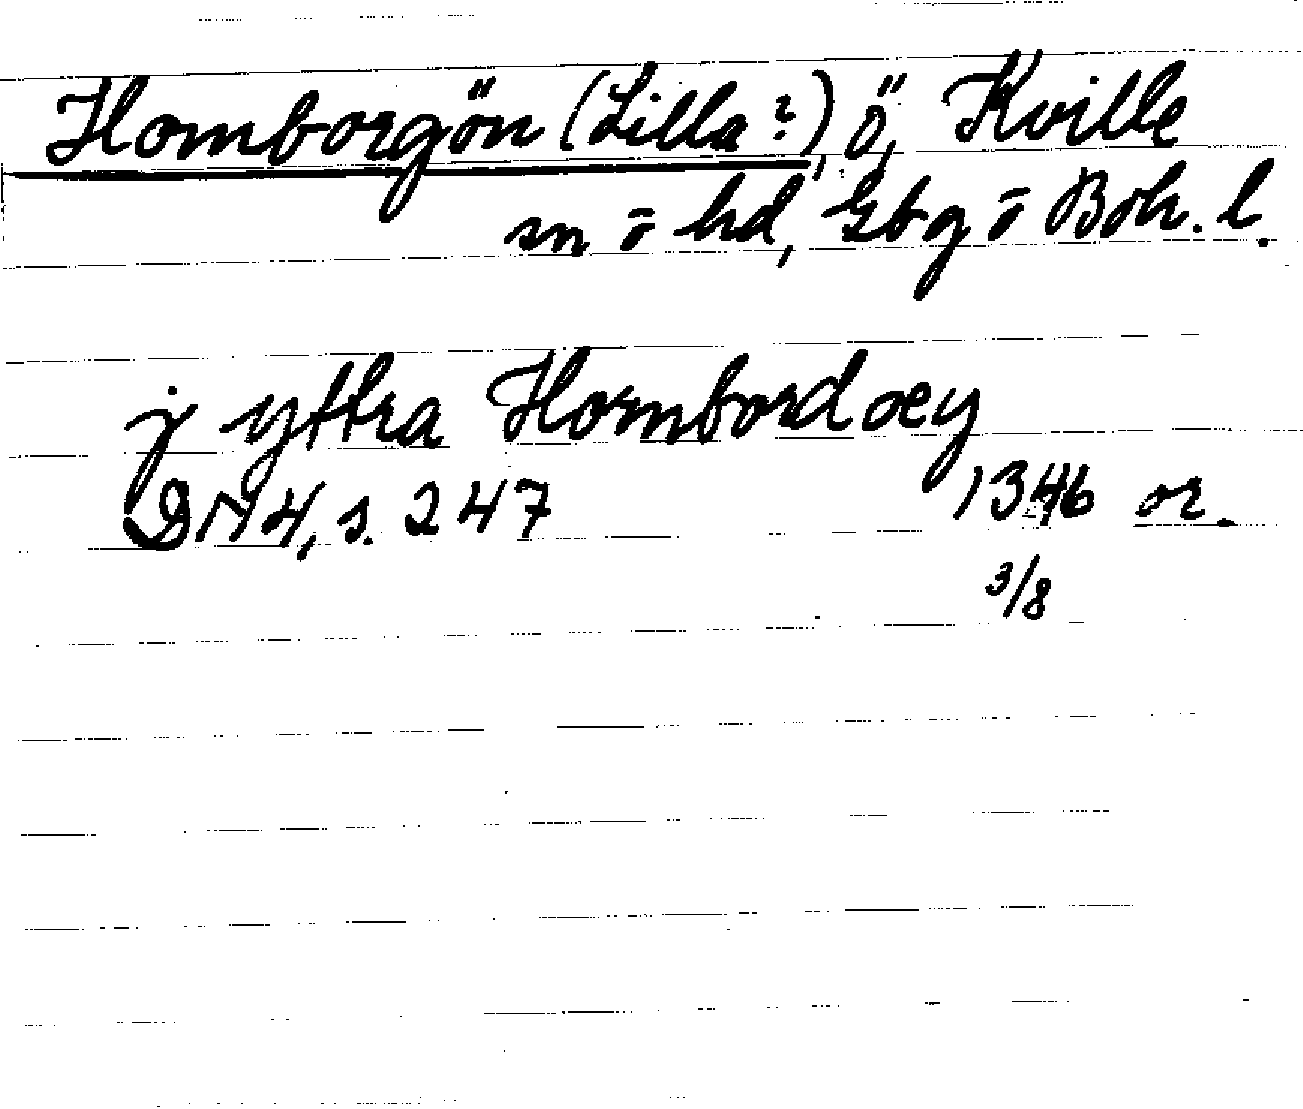 Homborgön (Lilla?), ö, Kville
sn o hd, Gbg o Boh. l.
j yttra Hornbordoey
DN 4, s. 247 1346 or.
3/8